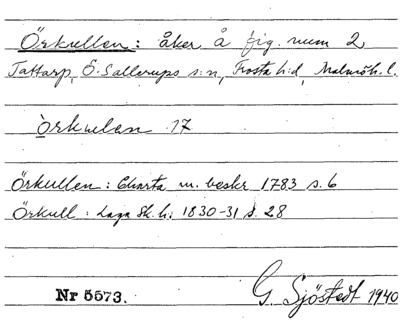 Örkullen: åker å fig. num 2
Tattarp, Ö. Sallerups s:n, Frosta h:d, Malmöh. l.
Örkulan 17
Örkullen: Charta m. beskr 1783 s. 6
Örkull: Laga Sk. h. 1830-31 s. 28
Nr 5573.
G. Sjöstedt 1940